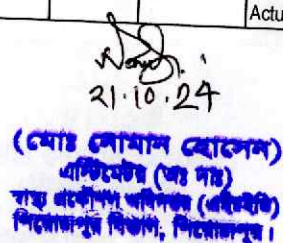 Actu
21.10.24
(মোঃ নোমান হোসেন)
এস্টিমেটর (অঃ দাঃ)
স্বাস্থ্য প্রকৌশল অধিদপ্তর (এইচইডি)
পিরোজপুর বিভাগ, পিরোজপুর।